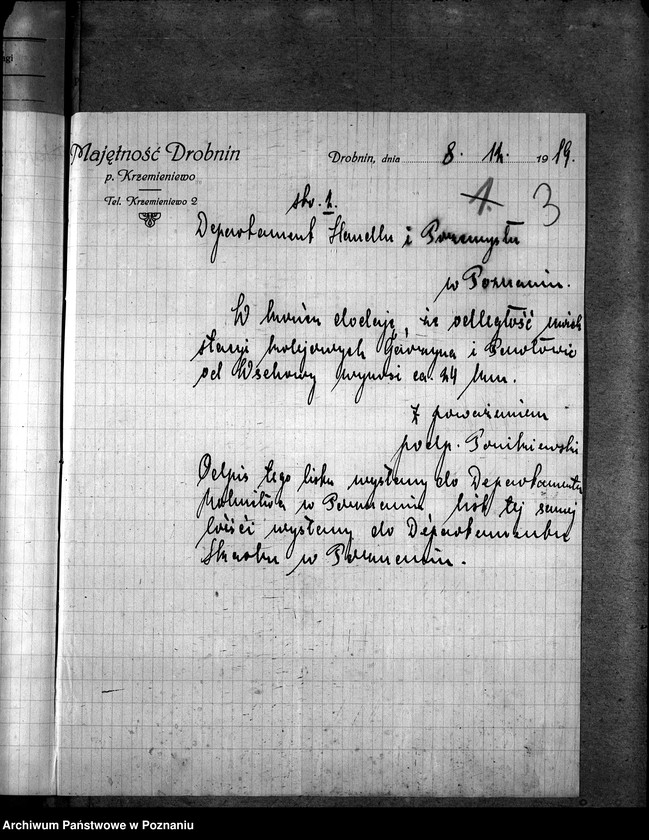 gi
Majętność Drobnin
p. Krzemieniewo
Tel. Krzemieniewo 2
Drobnin, dnia 8. 12. 1919.
str. 2.
1. 3
Departament Handlu i Przemysłu
w Poznaniu.
W końcu dodaję, że odległość
stacyi kolejowych Garzyna i Pawłowic
od Wschowy wynosi ca. 24 klm.
Z poważaniem
podp. Ponikiewski
Odpis tego listu wysłany do Departamentu
Rolnictwa w Poznaniu list tej samej
treści wysłany do Departamentu
Skarbu w Poznaniu.
Archiwum Państwowe w Poznaniu